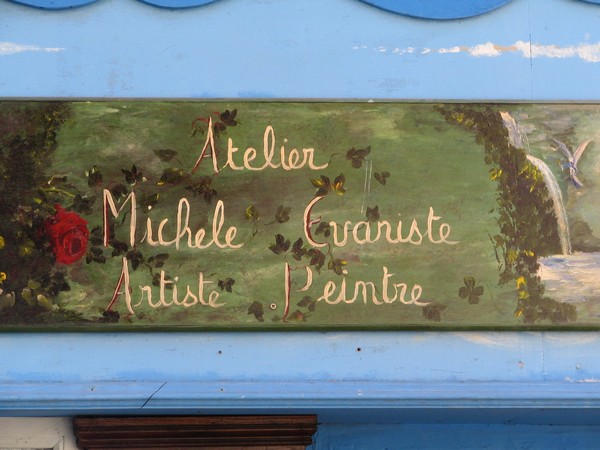 Atelier
Michele Evariste
Artiste . Peintre